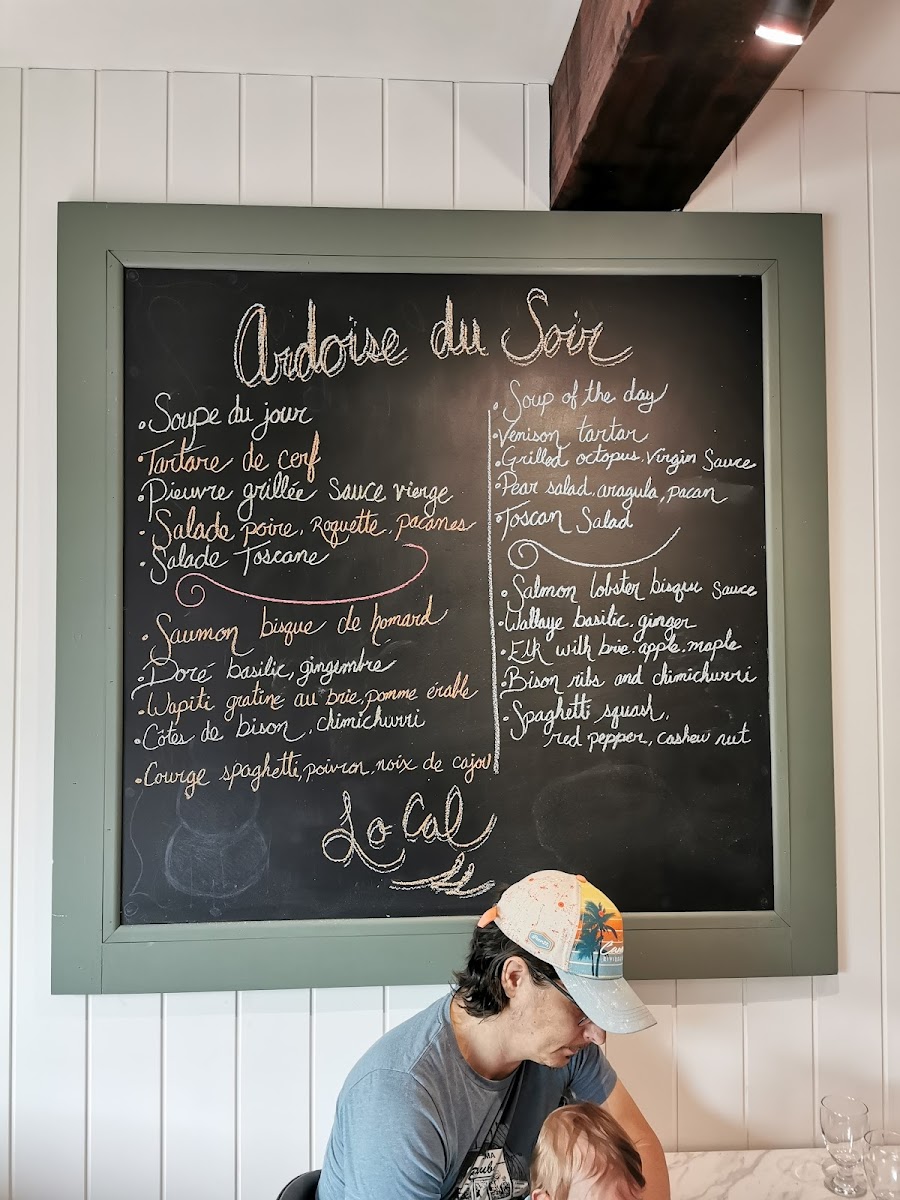 Ardoise du Soir
• Soupe du jour
• Tartare de cerf
• Pieuvre grillée Sauce vierge
• Salade poire, Roquette, pacanes
• Salade Toscane
• Saumon bisque de homard
• Doré basilic, gingembre
• Wapiti gratine au brie, pomme érable
• Côtes de bison, chimichurri
• Courge spaghetti, poivron, noix de cajou
• Soup of the day
• Venison tartar
• Grilled octopus, Virgin Sauce
• Pear salad, aragula, pacan
• Toscan Salad
• Salmon lobster bisque Sauce
• Wallaye basilic, ginger
• Elk with brie, apple, maple
• Bison ribs and chimichurri
• Spaghetti squash,
red pepper, cashew nut
Lo Cal